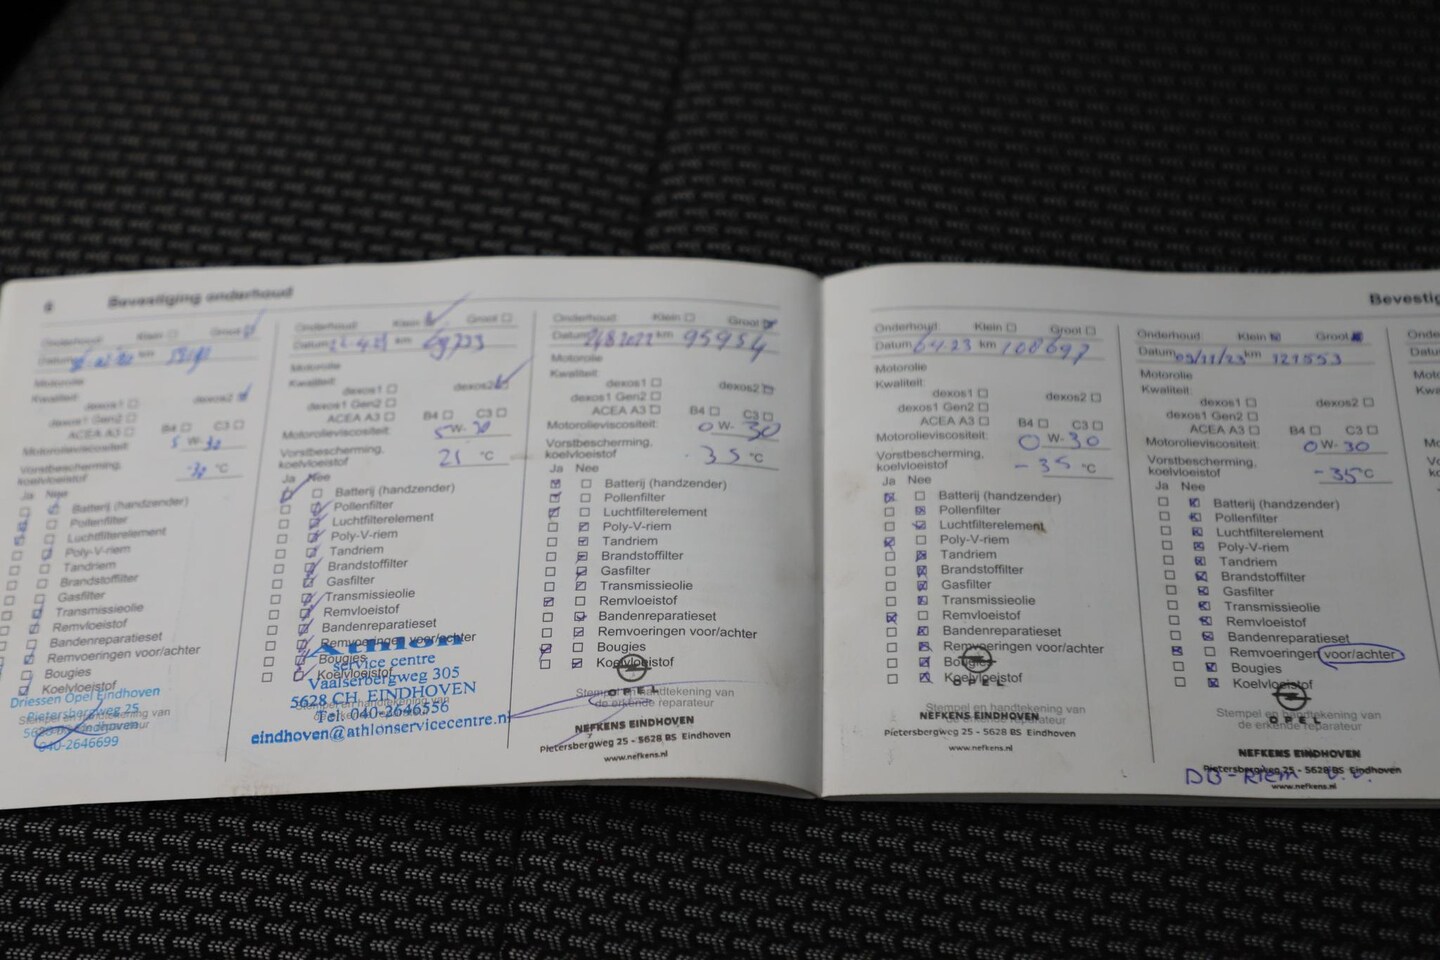 6 Bevestiging onderhoud
Onderhoud: Klein Groot
Datum km
Motorolie
Kwaliteit:
dexos1 dexos2
dexos1 Gen2
ACEA A3 B4 C3
Motorolieviscositeit: 5 W- 30
Vorstbescherming,
koelvloeistof -30 °C
Ja Nee
Batterij (handzender)
Pollenfilter
Luchtfilterelement
Poly-V-riem
Tandriem
Brandstoffilter
Gasfilter
Transmissieolie
Remvloeistof
Bandenreparatieset
Remvoeringen voor/achter
Bougies
Koelvloeistof
Driessen Opel Eindhoven
Pietersbergweg 25
Stempel en handtekening van
de erkende reparateur
040-2646699
Onderhoud: Klein Groot
Datum km 69723
Motorolie
Kwaliteit:
dexos1 dexos2
dexos1 Gen2
ACEA A3 B4 C3
Motorolieviscositeit: 5 W- 30
Vorstbescherming,
koelvloeistof 21 °C
Ja Nee
Batterij (handzender)
Pollenfilter
Luchtfilterelement
Poly-V-riem
Tandriem
Brandstoffilter
Gasfilter
Transmissieolie
Remvloeistof
Bandenreparatieset
Remvoeringen voor/achter
Bougies
Koelvloeistof
Athlon
service centre
Vaalserbergweg 305
5628 CH EINDHOVEN
Tel. 040-2646556
eindhoven@athlonservicecentre.nl
Onderhoud: Klein Groot
Datum 2482022 km 95954
Motorolie
Kwaliteit:
dexos1 dexos2
dexos1 Gen2
ACEA A3 B4 C3
Motorolieviscositeit: 0 W- 30
Vorstbescherming,
koelvloeistof - 35 °C
Ja Nee
Batterij (handzender)
Pollenfilter
Luchtfilterelement
Poly-V-riem
Tandriem
Brandstoffilter
Gasfilter
Transmissieolie
Remvloeistof
Bandenreparatieset
Remvoeringen voor/achter
Bougies
Koelvloeistof
OPEL
Stempel en handtekening van
de erkende reparateur
NEFKENS EINDHOVEN
Pietersbergweg 25 - 5628 BS Eindhoven
www.nefkens.nl
Onderhoud: Klein Groot
Datum 6423 km 108697
Motorolie
Kwaliteit:
dexos1 dexos2
dexos1 Gen2
ACEA A3 B4 C3
Motorolieviscositeit: 0 W- 30
Vorstbescherming,
koelvloeistof - 35 °C
Ja Nee
Batterij (handzender)
Pollenfilter
Luchtfilterelement
Poly-V-riem
Tandriem
Brandstoffilter
Gasfilter
Transmissieolie
Remvloeistof
Bandenreparatieset
Remvoeringen voor/achter
Bougies
Koelvloeistof
OPEL
Stempel en handtekening van
de erkende reparateur
NEFKENS EINDHOVEN
Pietersbergweg 25 - 5628 BS Eindhoven
www.nefkens.nl
Bevestig
Onderhoud: Klein Groot
Datum 09/11/23 km 121553
Motorolie
Kwaliteit:
dexos1 dexos2
dexos1 Gen2
ACEA A3 B4 C3
Motorolieviscositeit: 0 W- 30
Vorstbescherming,
koelvloeistof -35 °C
Ja Nee
Batterij (handzender)
Pollenfilter
Luchtfilterelement
Poly-V-riem
Tandriem
Brandstoffilter
Gasfilter
Transmissieolie
Remvloeistof
Bandenreparatieset
Remvoeringen voor/achter
Bougies
Koelvloeistof
OPEL
Stempel en handtekening van
de erkende reparateur
NEFKENS EINDHOVEN
Pietersbergweg 25 - 5628 BS Eindhoven
DB-Riem v.v.
www.nefkens.nl